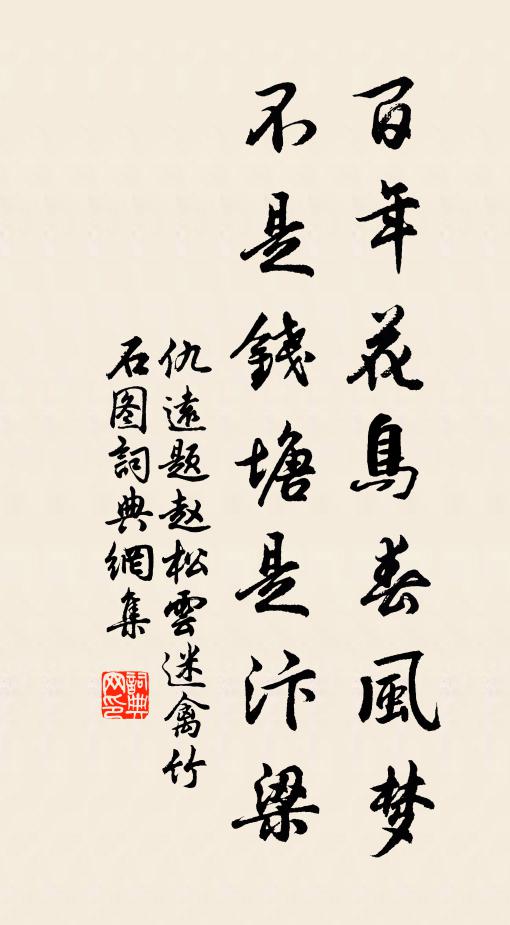 百年花鳥春風梦
不是錢塘是汴梁
仇遠题赵松雲迷禽竹
石图詞典網集
詞典网印